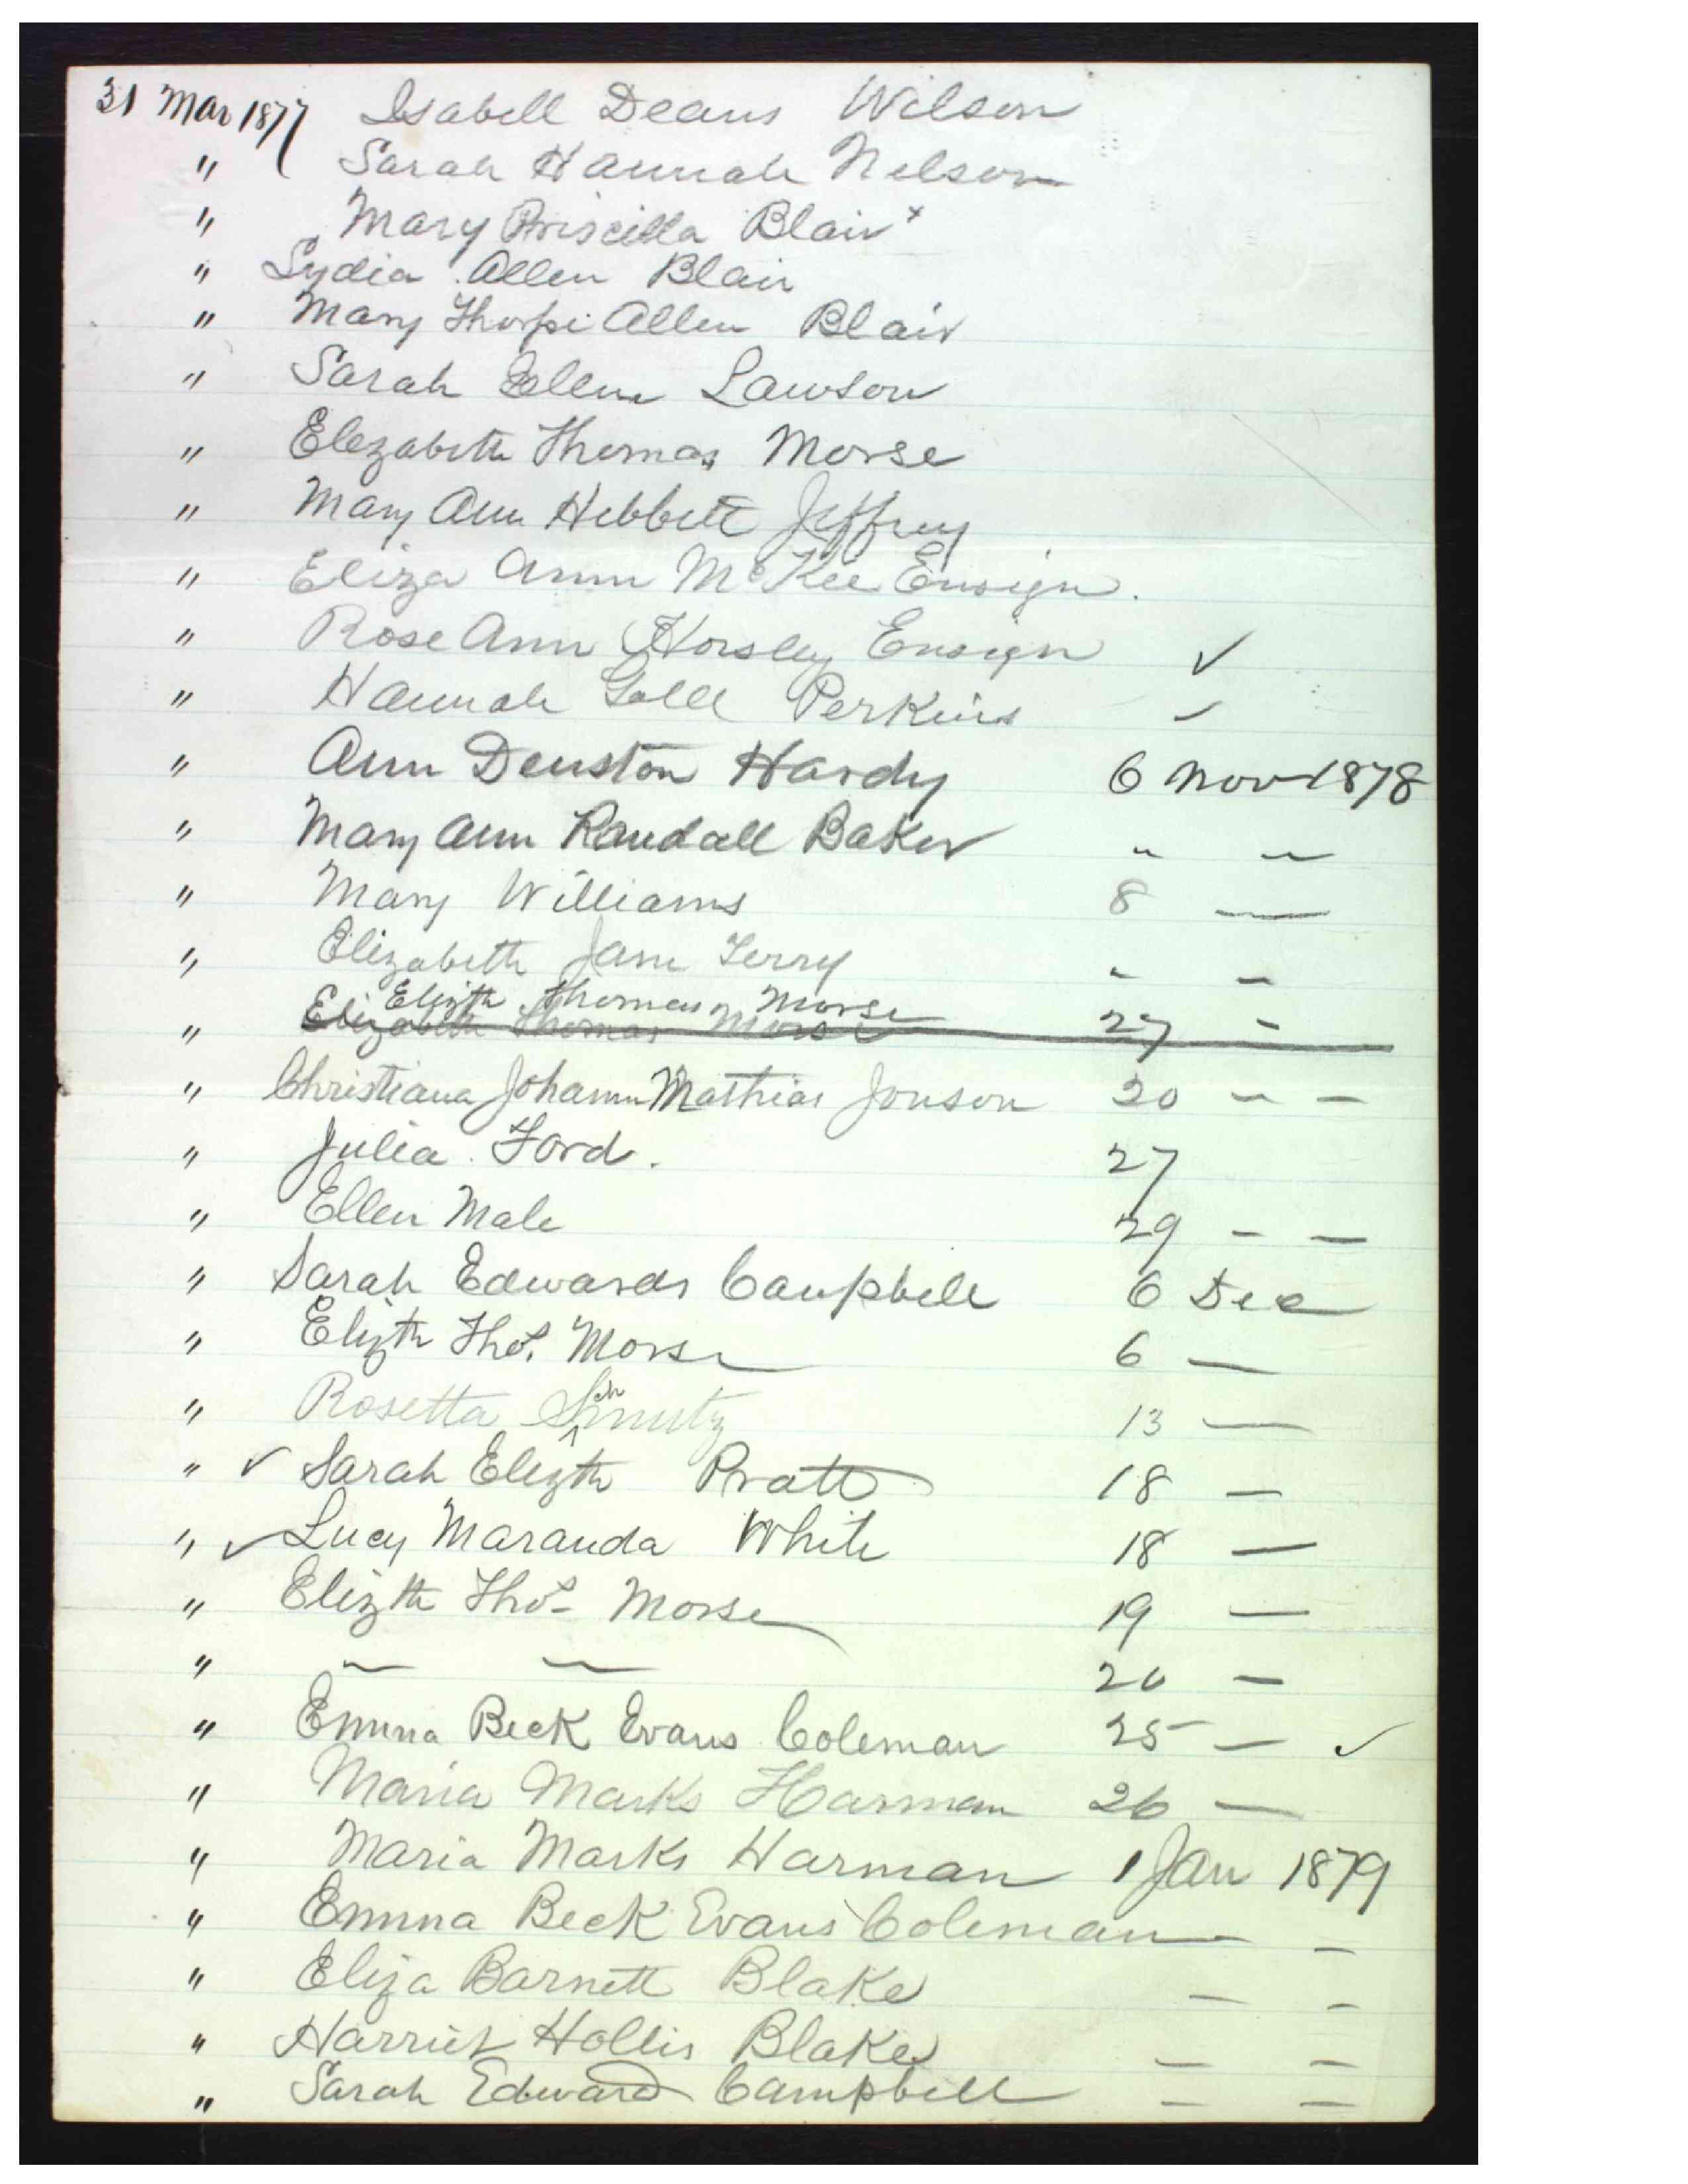 31 Mar 1877 Isabell Deans Wilson
" Sarah Hannah Nelson
" Mary Priscilla Blair x
" Lydia Allen Blair
" Mary Thorpe Allen Blair
" Sarah Ellen Lawson
" Elezabeth Thomas Morse
" Mary Ann Hibbett Jeffrey
" Eliza Ann McKee Ensign.
" Rose Ann Horsley Ensign ✓
" Hannah Golll Perkins ✓
" Ann Denston Hardy 6 Nov 1878
" Mary Ann Randall Baker " —
" Mary Williams 8 —
" Elizabeth Jane Terry " —
Elizth Thomas Morse
" Elizabeth Thomas Morse 27 -
" Christiana Johann Mathias Jonson 20 - -
" Julia Ford. 27
" Ellen Male 29 - -
" Sarah Edwards Campbell 6 Dec
" Elizth Thos. Morse 6 —
" Rosetta Schmutz 13 —
" ✓ Sarah Elizth Pratt 18 —
" ✓ Lucy Maranda White 18 —
" Elizth Thos Morse 19 —
" — — 20 —
" Emma Beck Evans Coleman 25 — ✓
" Maria Marks Harman 26 —
" Maria Marks Harman 1 Jan 1879
" Emma Beck Evans Coleman — -
" Eliza Barnett Blake — -
" Harriet Hollis Blake — —
" Sarah Edward Campbell — —